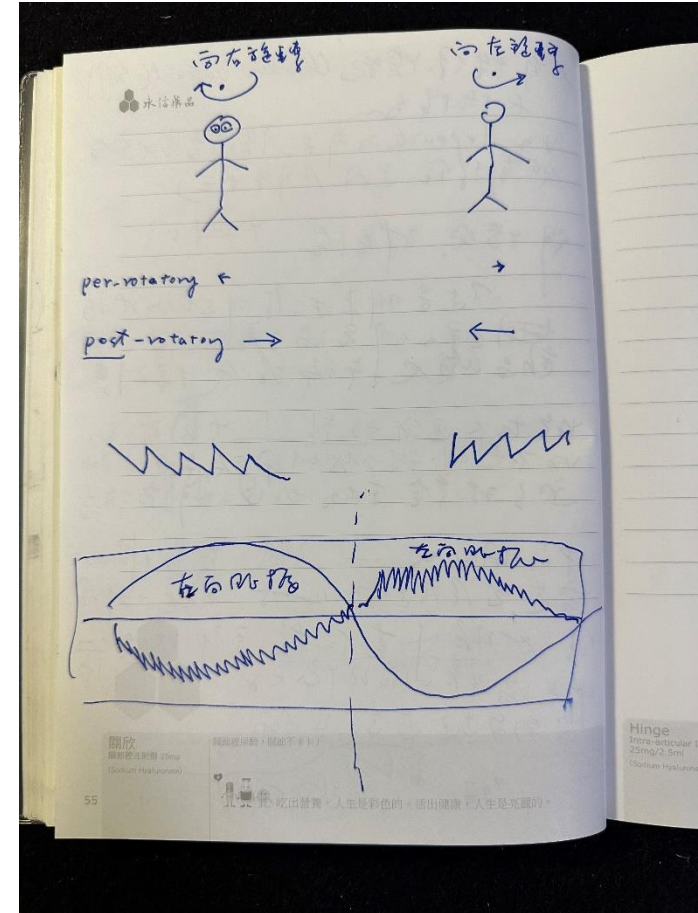 向右旋轉
向左旋轉
永信藥品
per-rotatory
post-rotatory
右向眼振
左向眼振
關放
關節腔注射劑 25mg
(Sodium Hyaluronate)
55
吃出營養，人生是彩色的。活出健康，人生是亮麗的。
Hinge
Intra-articular
25mg/2.5ml
(Sodium Hyaluron